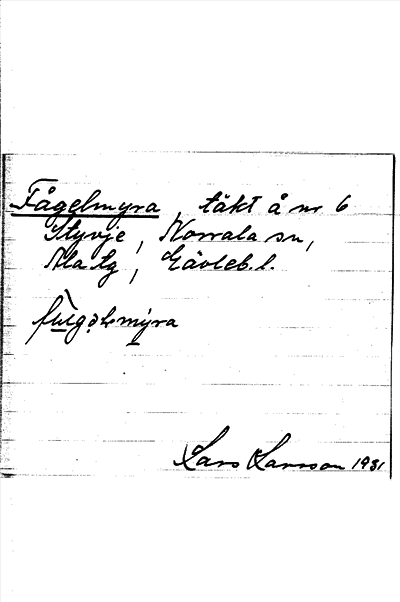 Fågelmyra, täkt å nr 6
Styvje, Norrala sn,
Ala tg, Gävleb. l.
fu̲lgəlmy̲ra
Lars Larsson 1931